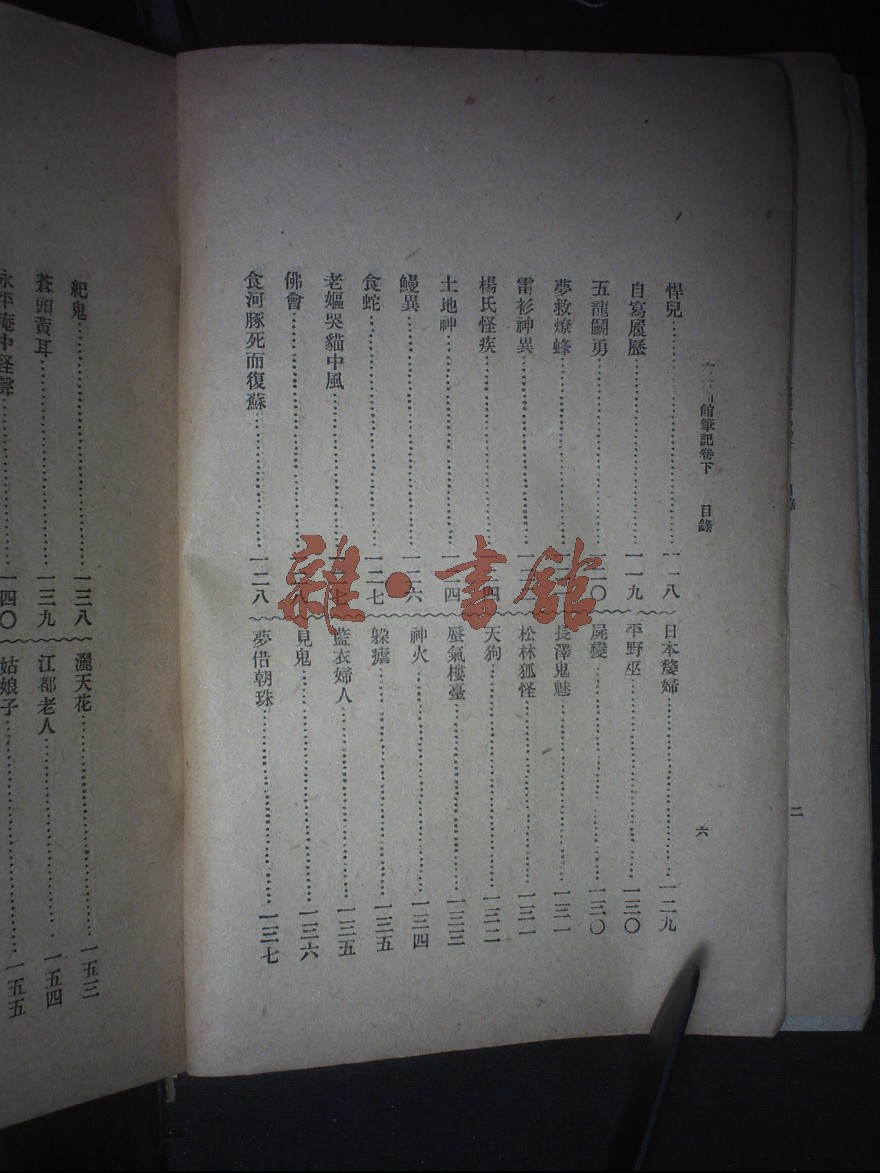 館筆記卷下 目錄
六
悍兒……一一八
自寫履歷……一一九
五龍鬭勇……一二〇
夢救燎蜂……
雷衫神異……
楊氏怪疾……
土地神……一二四
鰻異……一二六
食蛇……一二七
老嫗哭貓中風……
佛會……
食河豚死而復蘇……一二八
日本嫠婦……一二九
平野巫……一三〇
屍變……一三〇
長澤鬼魅……一三一
松林狐怪……一三一
天狗……一三二
蜃氣樓臺……一三三
神火……一三四
躲瘧……一三五
藍衣婦人……一三五
見鬼……一三六
夢借朝珠……一三七
紀鬼……一三八
蒼頭黃耳……一三九
永平庵中怪聲……一四〇
灑天花……一五三
江都老人……一五四
姑娘子……一五五
二
雜·書館